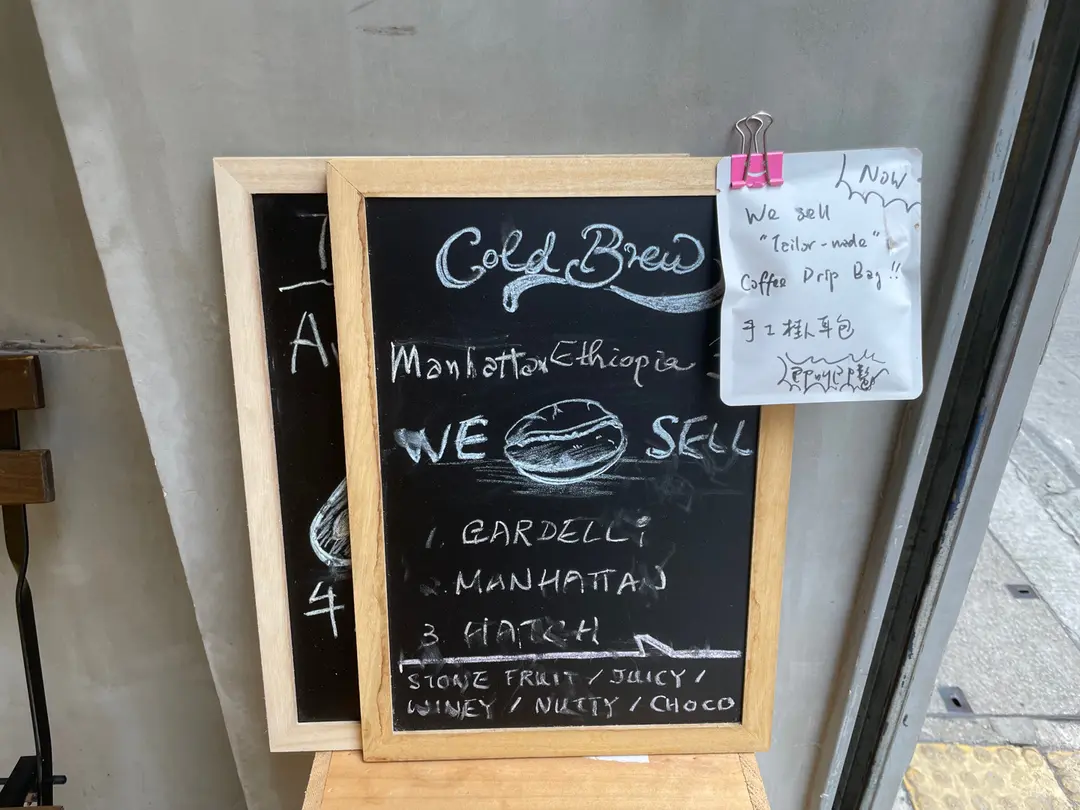 Cold Brew
Manhattan Ethiopia
WE SELL
1. GARDELLi
2. MANHATTAN
3. HATCH
STONE FRUIT / JUICY /
WINEY / NUTTY / CHOCO
NOW
We sell
"Tailor-made"
Coffee Drip Bag!!
手工掛耳包
T
A
牛